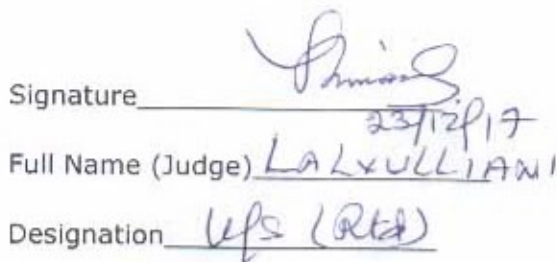 Signature
23/12/17
Full Name (Judge) LALXULLIANI
Designation (Rtd)